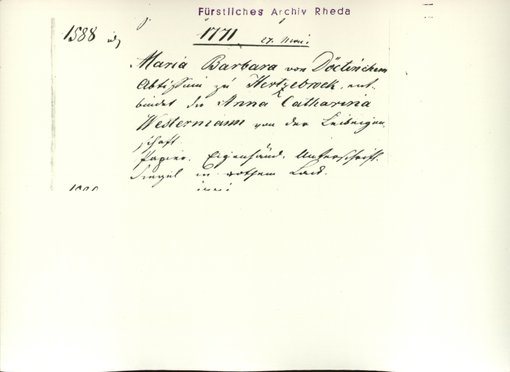 Fürstliches Archiv Rheda
1588
1771
27. Mai.
Maria Barbara von Döclinchem
Äbtissin zu Hertzebrock, ent-
bindet die Anna Catharina
Westermann von der Leibeigen-
schaft
Papier. Eigenhänd. Unterschrift.
Siegel in rothem Lack.